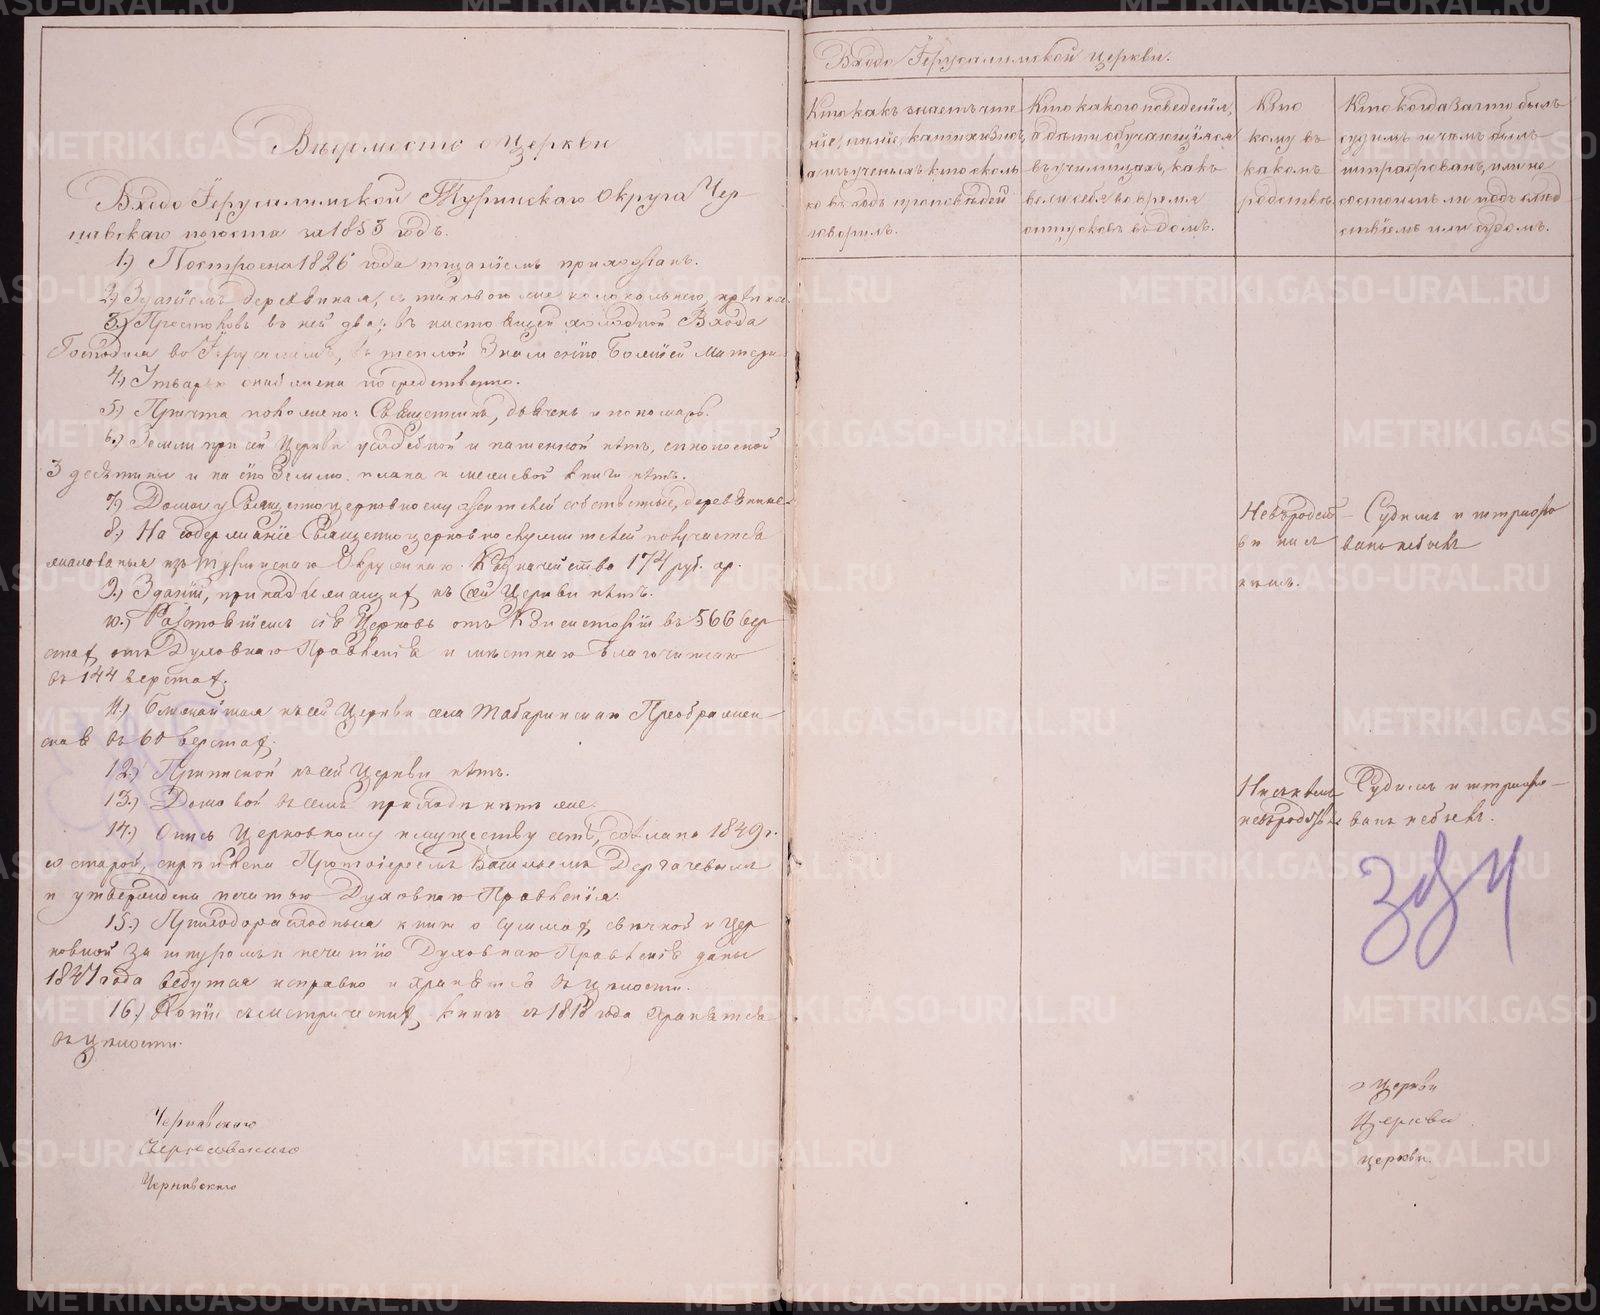 Ведомость о Церкви
Входо Іерусалимской Туринскаго Округа Чер
навскаго погоста за 1853 годъ.
1.) Построена 1826 года тщаніемъ прихожанъ.
2.) Зданіемъ деревянная, съ таковою же колокольнею, крепка.
3.) Престоловъ въ ней два: въ настоящей холодной Входа
Господня во Іерусалимъ, въ теплой Знаменію Божіей Матери.
4.) Утварью снабжена посредственно.
5.) Причта положено: Священникъ, дьячекъ и пономарь.
6.) Земли при сей Церкви усадебной и пашенной нѣтъ, сенокосной
3 десятины и на сію Землю плана и межевой книги нѣтъ.
7.) Домы у Священноцерковнослужителей собственные, деревянные.
8.) На содержаніе Священноцерковнослужителей получается
жалованья изъ Туринскаго Окружнаго Казначейства 174 руб. ср.
9.) Зданій, принадлежащихъ къ сей Церкви нѣтъ.
10.) Разстояніемъ сія Церковь отъ Консисторіи въ 566 вер
стахъ, отъ Духовнаго Правленія и местнаго Благочиннаго
въ 144 верстахъ.
11.) Ближайшая къ сей Церкви села Табаринскаго Преображен
ская въ 60 верстахъ.
12.) Приписной къ сей Церкви нѣтъ.
13.) Домовой въ семъ приходе нетъ же.
14.) Опись Церковному имуществу есть, сделана 1849 г.
со старой, скреплена Протоіереемъ Васильемъ Дергачевымъ
и утверждена печатью Духовнаго Правленія.
15.) Приходорасходныя книги о суммахъ свечной и Цер
ковной за шнуромъ и печатію Духовнаго Правленія даны
1847 года ведутся исправно и хранятся въ целости.
16.) Копіи съ метрическихъ книгъ съ 1818 года хранятся
въ целости.
Чернавскаго
Чернавскаго
Чернавскаго
Входо Іерусалимской Церкви.
Кто какъ знаетъ чте
ніе, пѣніе, катихизисъ,
а изъ ученыхъ кто сколь
ко въ годъ проповѣдей
говорилъ.
Кто какого поведенія,
а дѣти обучающіяся
въ училищахъ, какъ
вели себя во время
отпусковъ въ домъ.
Кто
кому въ
какомъ
родствѣ.
Кто когда за что былъ
судимъ и чемъ былъ
штрафованъ, или не
состоитъ ли подъ след
ствіемъ или судомъ.
Не въ родст
ве ни съ
кемъ.
Судимъ и штрафо
ванъ не былъ
Ни съ кемъ
не въ родстве
Судимъ и штрафо
ванъ не былъ.
о Церкви
Церкви
церкви.